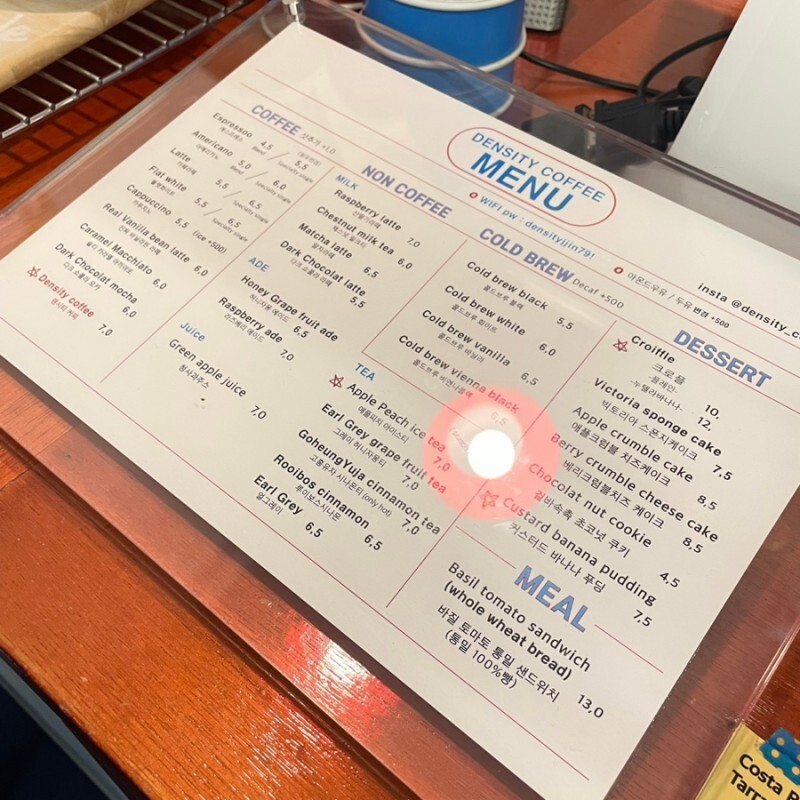 DENSITY COFFEE
MENU
WIFI pw : densityjjin79!
아몬드우유 / 두유 변경 +500
insta @density_co
COFFEE 샷추가 +1.0
Espressoo 4,5 / 5,5
에스프레소 Blend Specialty single
Americano 5,0 / 6,0
아메리카노 Blend Specialty single
Latte 5,5 / 6,5
카페라떼 Specialty single
Flat white 5,5 / 6,5
플랫화이트 Specialty single
Cappuccino 5,5 (ice +500)
카푸치노
Real Vanilla bean latte 6,0
진짜 바닐라빈 라떼
Caramel Macchiato 6,0
솔티 카라멜 마끼아또
Dark Chocolat mocha 6,0
다크 쇼콜라 모카
Density coffee 7,0
덴시티 커피
NON COFFEE
MILK
Raspberry latte 7,0
산딸기라떼
Chestnut milk tea 6,0
체스넛 밀크티
Matcha latte 6,5
말차라떼
Dark Chocolat latte 5,5
다크 쇼콜라 라떼
ADE
Honey Grape fruit ade 6,5
허니자몽 에이드
Raspberry ade 7,0
라즈베리 에이드
Juice
Green apple juice 7,0
청사과주스
TEA
Apple Peach ice tea 7,0
애플피치 아이스티
Earl Grey grape fruit tea 7,0
그레이 허니자몽티
GoheungYuja cinnamon tea 7,0
고흥유자 시나몬티 (only hot)
Rooibos cinnamon 6,5
루이보스시나몬
Earl Grey 6,5
얼그레이
COLD BREW Decaf +500
Cold brew black 5,5
콜드브루 블랙
Cold brew white 6,0
콜드브루 화이트
Cold brew vanilla 6,5
콜드브루 바닐라
Cold brew vienna black 6,5
콜드브루 비엔나블랙
DESSERT
Croiffle
크로플
-플레인- 10,
-누텔라바나나- 12,
Victoria sponge cake 7,5
빅토리아 스폰지케이크
Apple crumble cake 8,5
애플크럼블 치즈케이크
Berry crumble cheese cake 8,5
베리크럼블치즈 케이크
Chocolat nut cookie 4,5
겉바속촉 초코넛 쿠키
Custard banana pudding 7,5
커스터드 바나나 푸딩
MEAL
Basil tomato sandwich
(whole wheat bread)
바질 토마토 통밀 샌드위치 13,0
(통밀 100%빵)